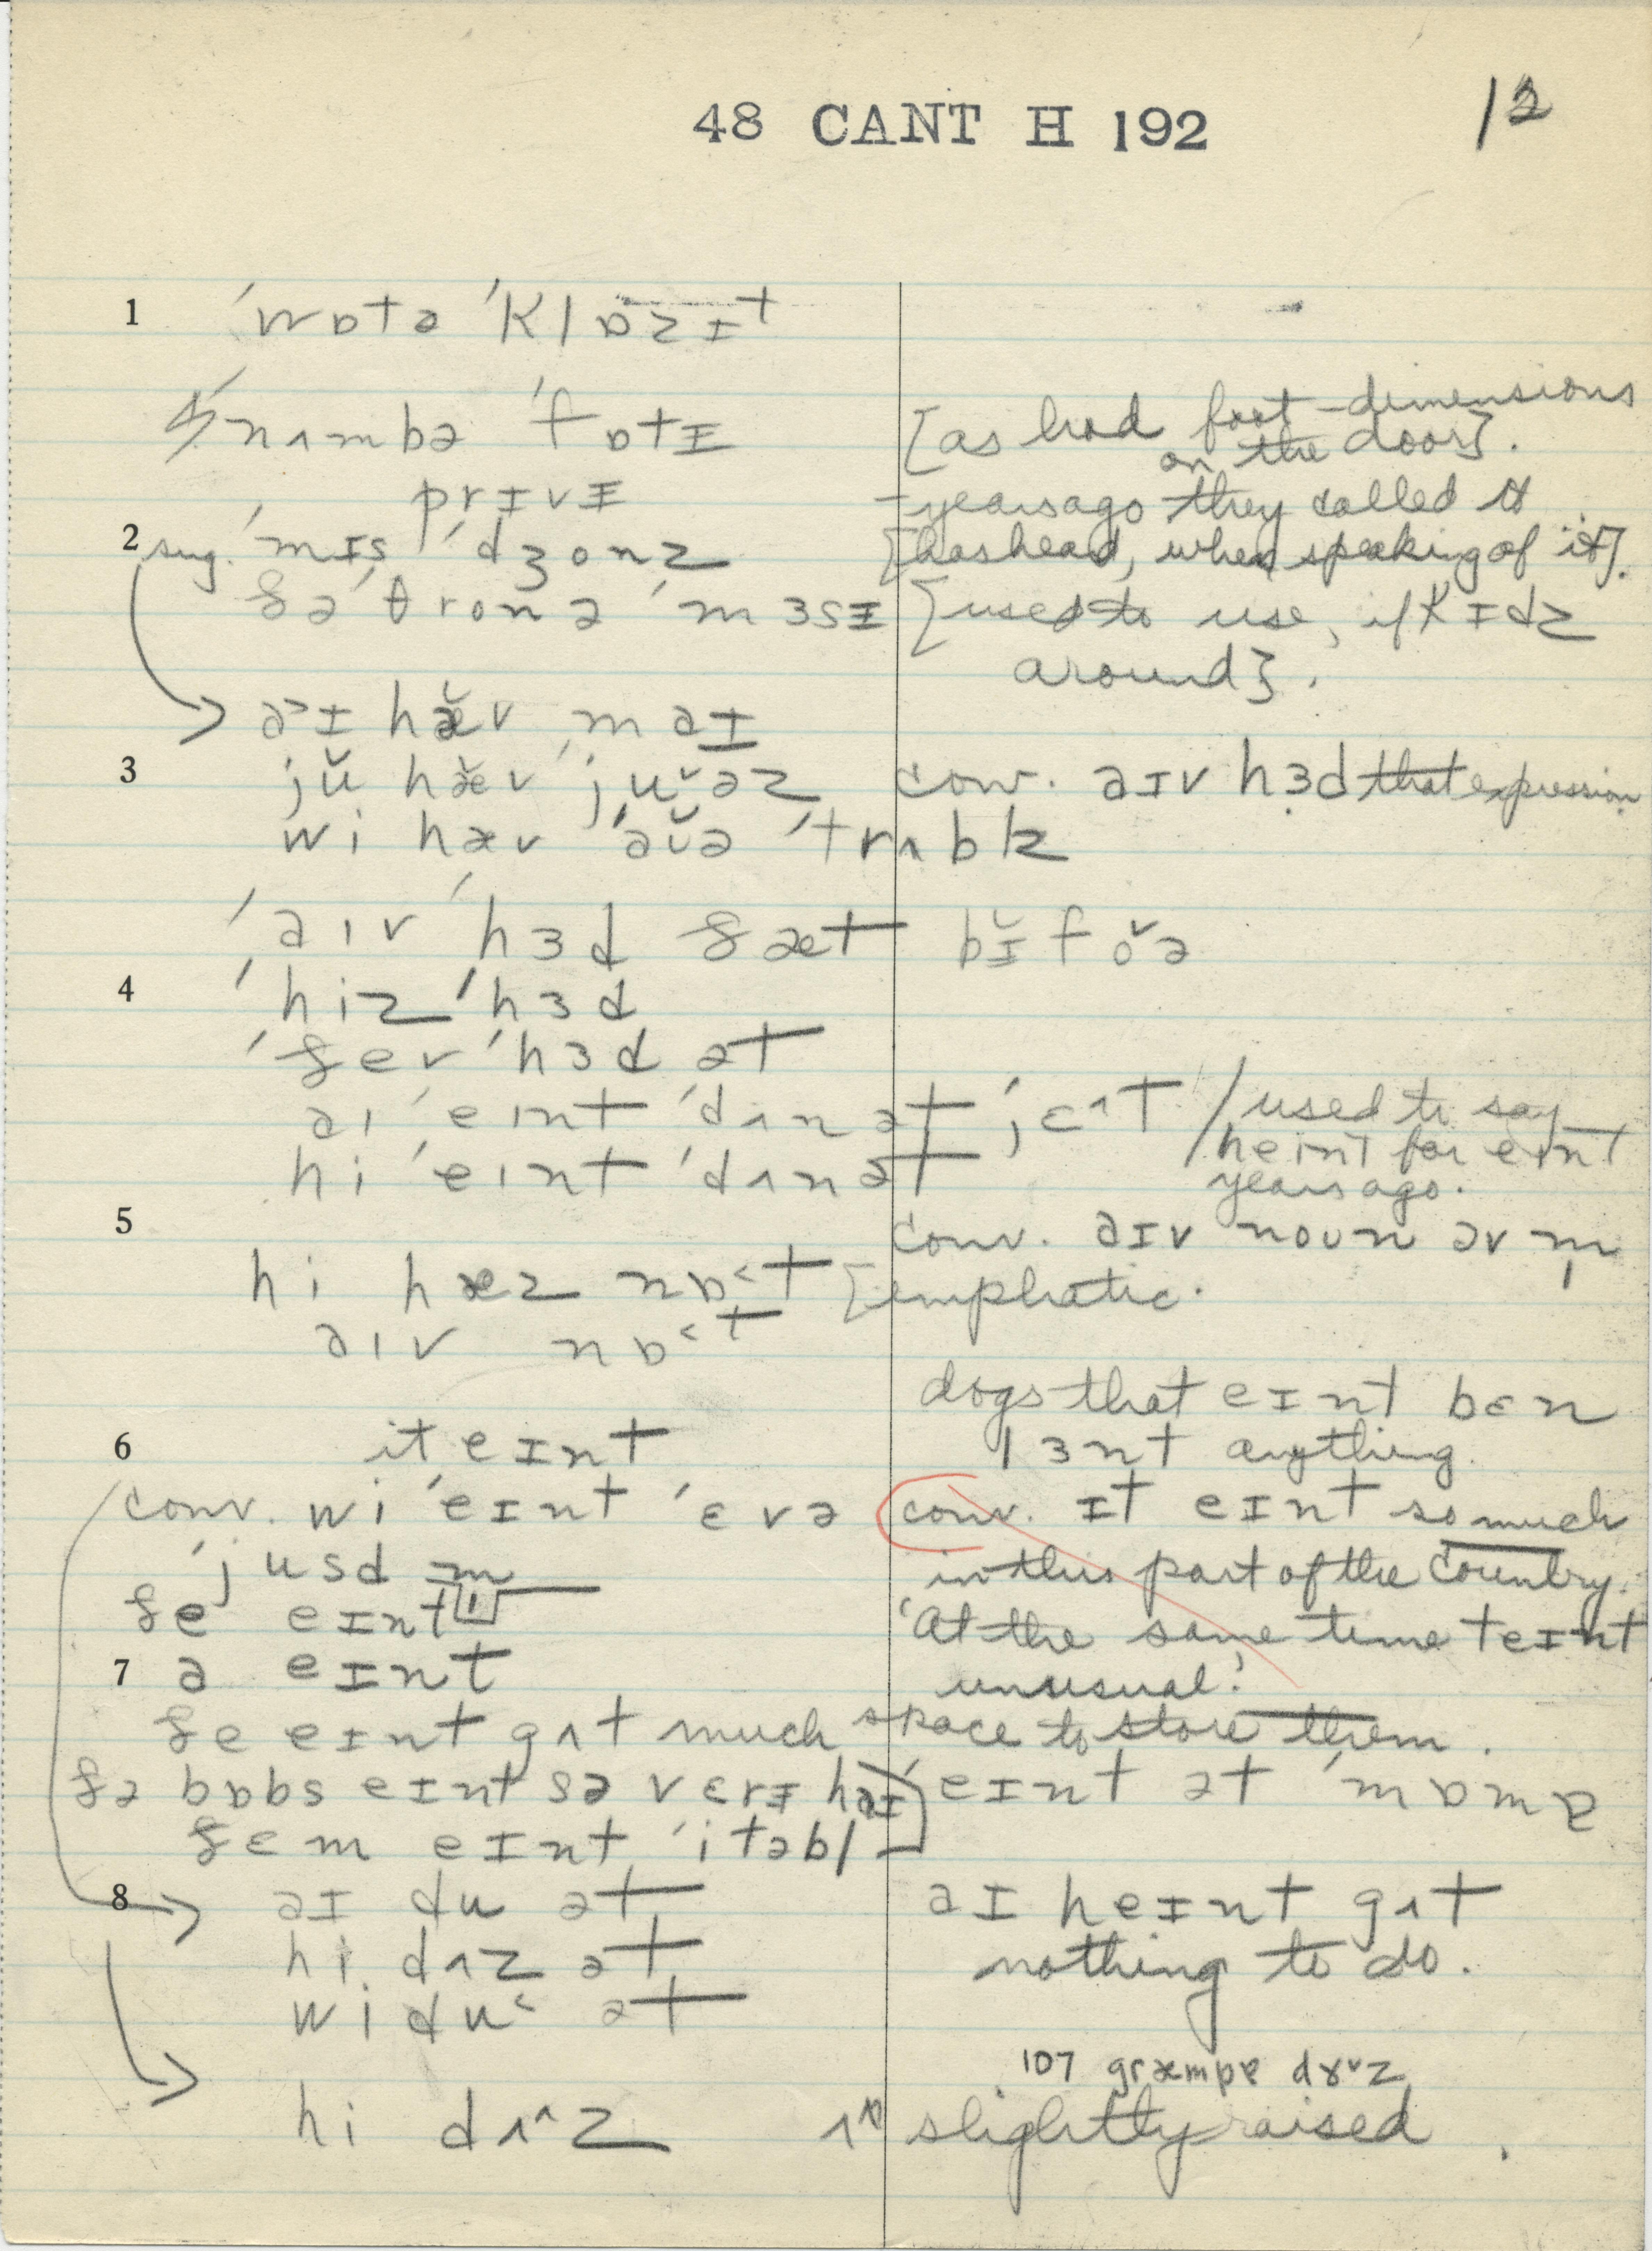 48 CANT H 192
12
1 ˈwɒtə ˈklɒzɪt
ˈnʌmbə ˈfɒtɪ [as had foot-dimensions
on the door].
prɪvɪ – years ago they called it
2 sug. ˈmɪs ˈdʒonz [has head, when speaking of it].
ðə ˈθronə ˈmɜsɪ [used to use, if kɪdz
around].
ə˃ɪ hæ̆v maɪ
3 jŭ hæ̆v ˈju˅əz conv. aɪv hɜd that expression
wi hæv ˈaʊ̆ə ˈtrʌblz
ˈaiv ˈhɜd ðæt bɪ̆fo˅ə
4 ˈhiz ˈhɜd
ˈðev ˈhɜd ət
ai ˈeint ˈdʌn ət jɛ^t / used to say
hi ˈeint ˈdʌn ət heint for eint
years ago.
5 conv. aɪv noʊn əv m̩
hi hæz nɒ˂t [emphatic.
aiv nɒ˂t
dogs that eɪnt bɛn
6 it eɪnt lɜnt anything.
conv. wi ˈeɪnt ˈɛvə conv. ɪt eɪnt so much
ˈjusd m in this part of the country.
ðe eɪnt 'At the same time teɪnt
7 ə eɪnt unusual.'
ðe eɪnt gʌt much space to store them.
ðə bɒbs eɪnt sə vɛrɪ haɪ eɪnt ət ˈmɒmɐ
ðɛm eɪnt ˈitəbl
8 aɪ du ət aɪ heɪnt gʌt
hi dʌz ət nothing to do.
wi du˂ ət
107 græmpɐ dɤ˅z
hi dʌ^z ʌ^ slightly raised.